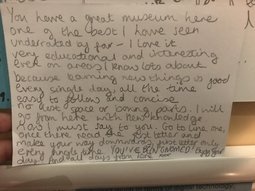 You have a great museum here
one of the best I have seen
underrated by far - I love it
very educational and interesting
even on areas I know lots about
because learning new things is good
every single day, all the time
easy to follow and concise
no dead space or boring parts. I will
go from here with new knowledge
Kids I must say to you. Go to line one,
once there read the first letter and
make your way downwards, first letter only
every single one. YOU'VE BEEN GNOMED!
day! And all days from here